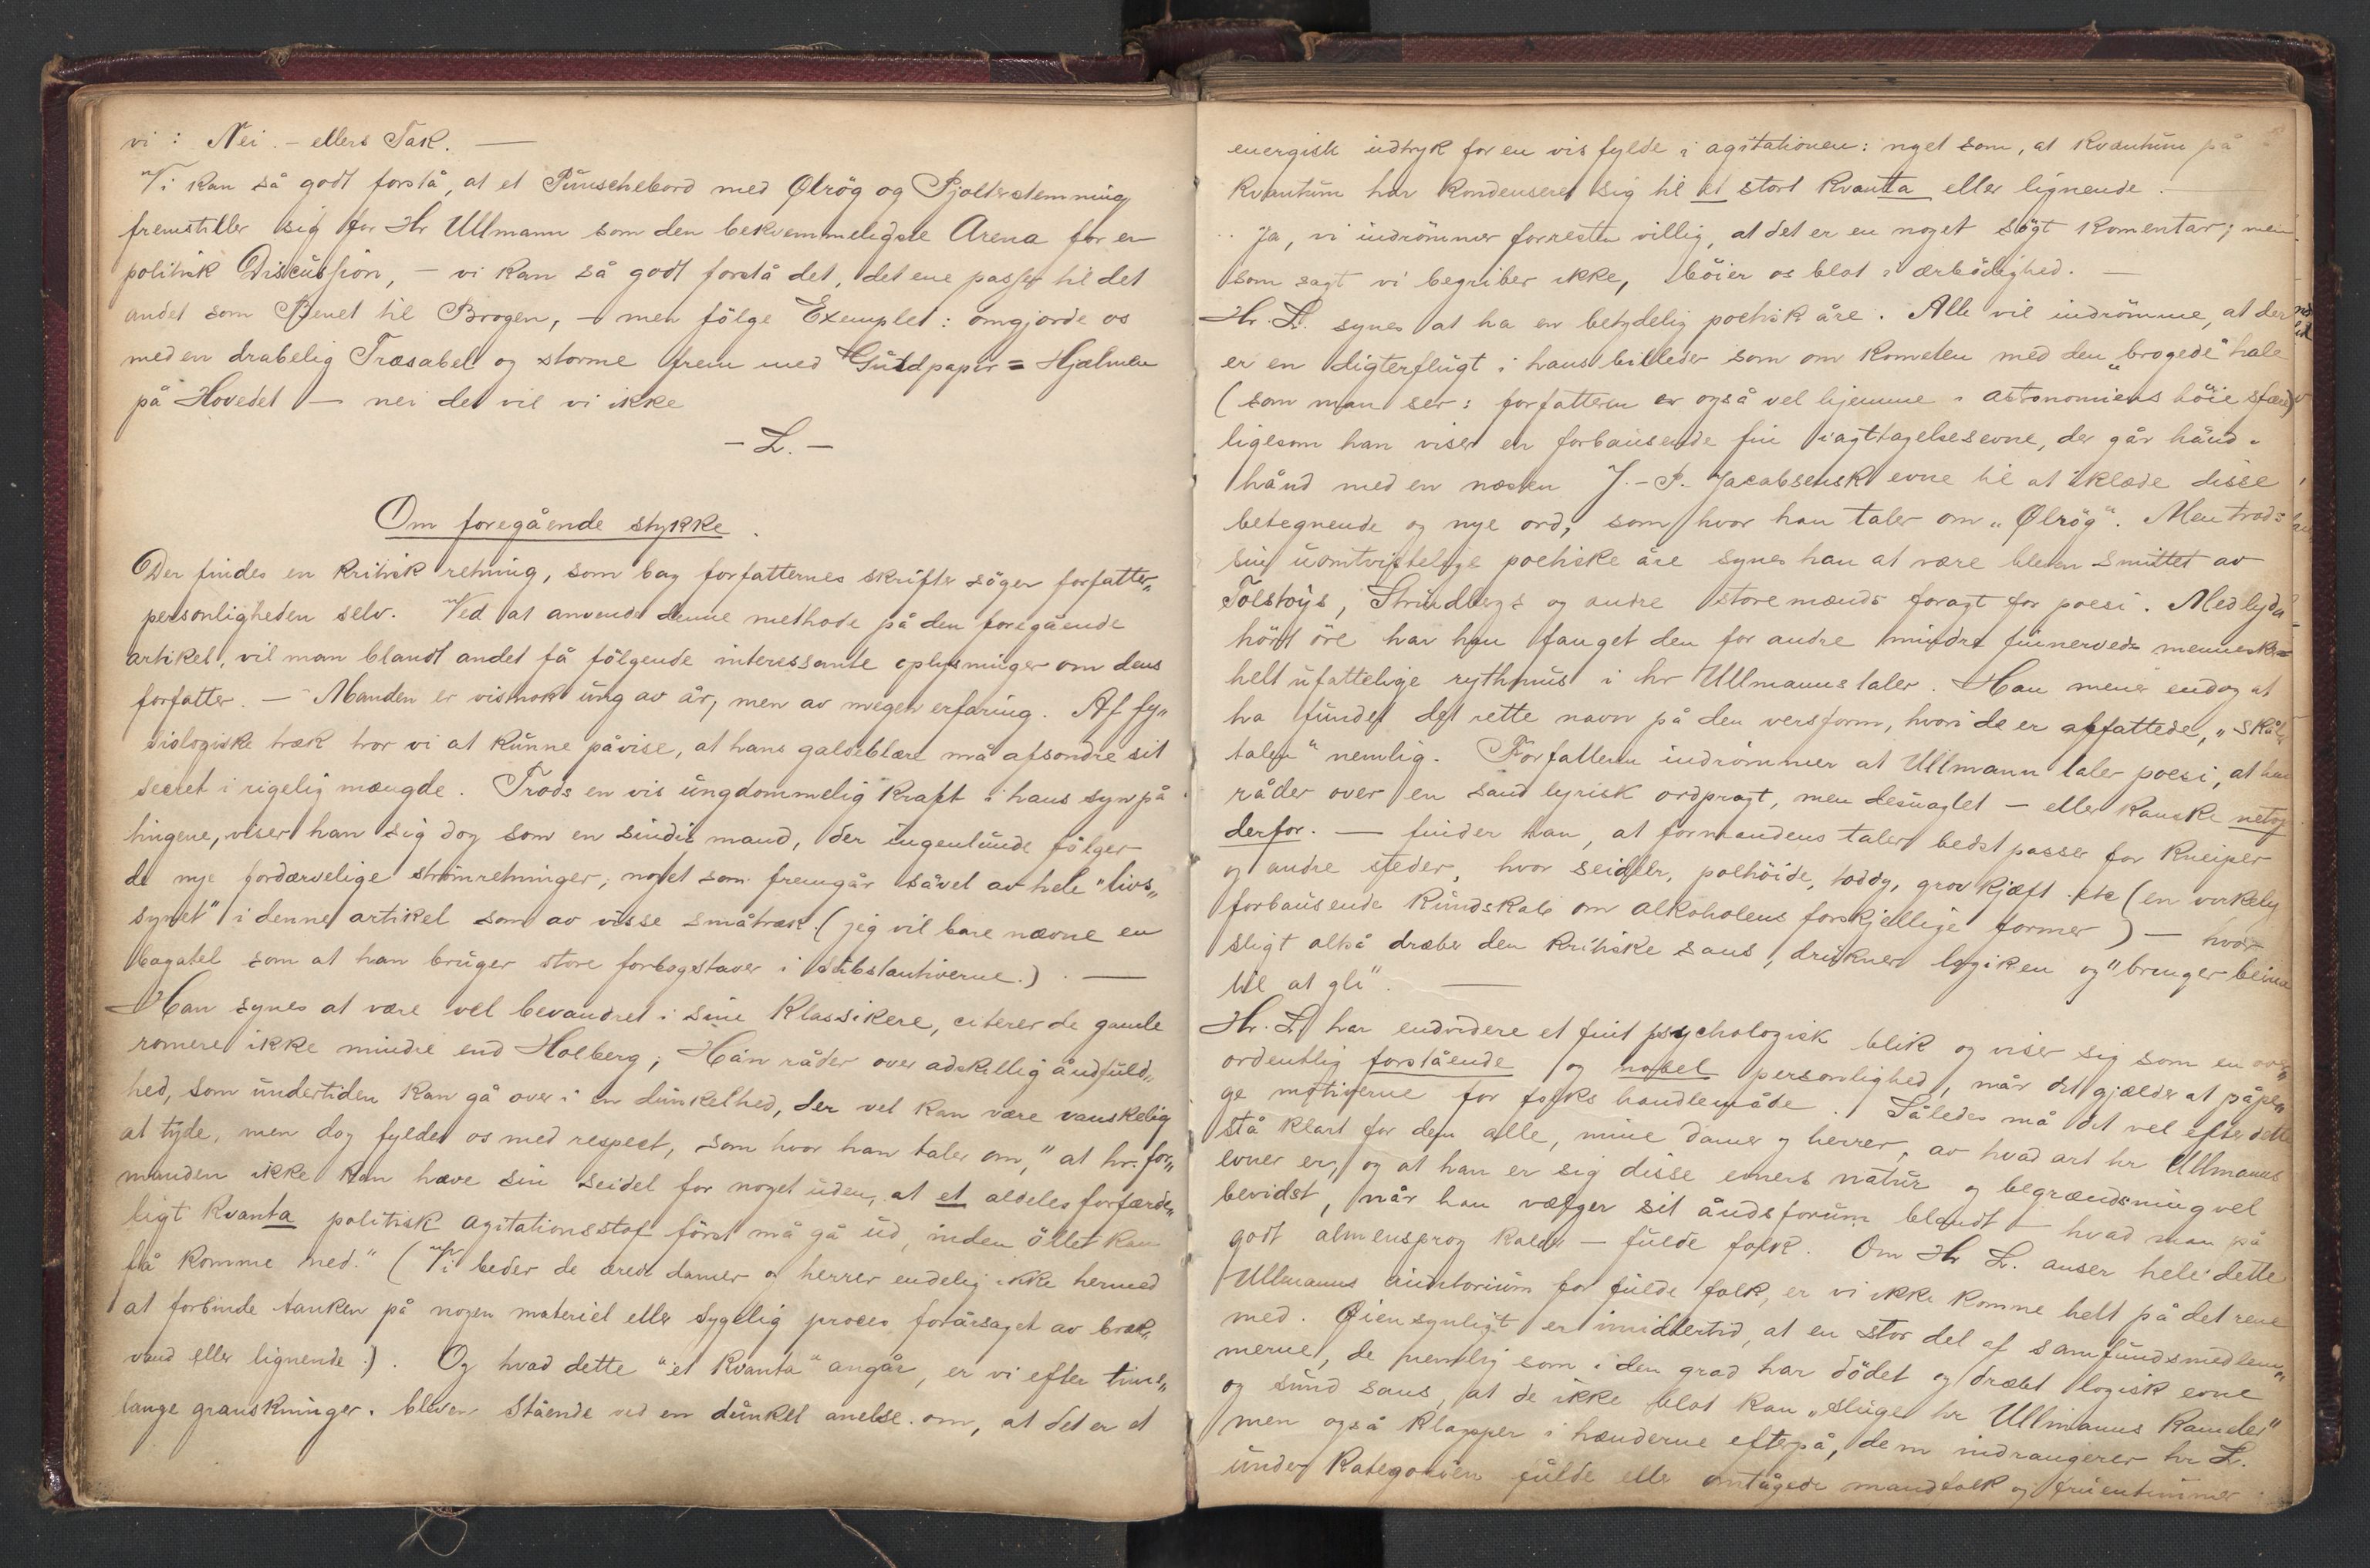 vi: Nei. – ellers Tak. —
Vi kan så godt forstå, at et Punschebord med Ølrög og Pjolterstemning
fremstiller sig for Hr Ullmann som den bekvemmeligste Arena for en
politisk Discussion, – vi kan så godt forstå det, det ene passer til det
andet som Benet til Brogen, – men följe Exemplet: omgjorde os
med en drabelig Træsabel og storme frem med Guldpapir=Hjælmen
på Hovedet – nei det vil vi ikke
– L. –
Om foregående stykke.
Der findes en kritisk retning, som bag forfatternes skrifter söger forfatter„
personligheden selv. Ved at anvende denne methode på den foregående
artikel, vil man blandt andet få fölgende interessante oplysninger om dens
forfatter. — Manden er vistnok ung av år, men av megen erfaring. Af fy„
siologiske træk tror vi at kunne påvise, at hans galdeblære må afsondre sit
secret i rigelig mængde. Trods en vis ungdommelig kraft i hans syn på
tingene, viser han sig dog som en sindig mand, der ingenlunde fölger
de nye fordærvelige strömretninger, noget som fremgår såvel av hele "livs„
synet" i denne artikel som av visse småtræk. (jeg vil bare nævne en
bagatel som at han bruger store forbogstaver i substantiverne.). —
Han synes at være vel bevandret i sine klassikere, citerer de gamle
romere ikke mindre end Holberg; Han råder over adskillig åndfuld„
hed, som undertiden kan gå over i en dunkelhed, der vel kan være vanskelig
at tyde, men dog fylder os med respect, som hvor han taler om, "at hr. for„
manden ikke kan hæve sin seidel for noget uden, at et aldeles forfærde„
ligt kvanta politisk agitationsstof först må gå ud, inden öllet kan
få komme ned." (Vi beder de ærede damer og herrer endelig ikke hermed
at forbinde tanken på nogen materiel eller sygelig proces forårsaget av bræk„
vand eller lignende.). Og hvad dette "et kvanta" angår, er vi efter time„
lange granskninger. bleven stående ved en dunkel anelse. om, at det er et
energisk udtryk for en vis fylde i agitationen: noget som, at kvantum på
kvantum har kondenseret sig til et stort kvanta eller lignende.
Ja, vi indrömmer forresten villig, at det er en noget sögt komentar; men
som sagt vi begriber ikke, böier os blot i ærbödighed. —
Hr. L. synes at ha en betydelig poetisk åre. Alle vil indrömme, at der
er en digterflugt i hans billeder som om kometen med den "brogede" hale
(som man ser: forfatteren er også vel hjemme i astronomiens höie sfærer)
ligesom han viser en forbausende fin iagttagelsesevne, der går hånd i
hånd med en næsten J.-P. Jacobsensk evne til at iklæde disse
betegnende og nye ord, som hvor han taler om „Ølrög". Men trods
sin uomtvistelige poetiske åre synes han at være bleven smittet av
Tolstoÿs, Strindbergs og andre store mænds foragt for poesi. Med lyda„
hört öre har han fanget den for andre mindre finnervede mennesker
helt ufattelige rythmus i hr Ullmanns taler. Han mener endog at
ha fundet det rette navn på den versform, hvori de er affattede, „skål„
talen" nemlig. Forfatteren indrömmer at Ullmann taler poesi, at han
råder over en sand lyrisk ordpragt, men desuagtet – eller kanske netop
derfor. — finder han, at formandens taler bedst passer for kneiper
og andre steder, hvor seidler, polhöide, toddy, grov kjæft etc (en virkelig
forbausende kundskab om alkoholens forskjellige former) – hvor
sligt altså dræber den kritiske sans, drukner logiken og "bringer beina
til at gli". —
Hr. L. har endvidere et fint psychologisk blik og viser sig som en over„
ordentlig forstående og nobel personlighed, når det gjælder at påpe„
ge motiverne for folks handlemåde. Således må det vel efter dette
stå klart for dem alle, mine damer og herrer, av hvad art hr Ullmanns
evner er, og at han er sig disse evners natur og begrændsning vel
bevidst, når han vælger sit åndsforum blandt – hvad man på
godt almensprog kalder – fulde folk. Om Hr L. anser hele dette
Ullmanns auditorium for fulde folk, er vi ikke komne helt på det rene
med. Øiensynligt er imidlertid, at en stor del af samfundsmedlem„
merne, de nemlig som i den grad har dödet og dræbt logisk evne
og sund sans, at de ikke blot kan „sluge hr Ullmanns kameler"
men også klapper i hænderne efterpå, dem indrangerer hr L.
under kategorien fulde eller omtågede mandfolk og fruentimmer